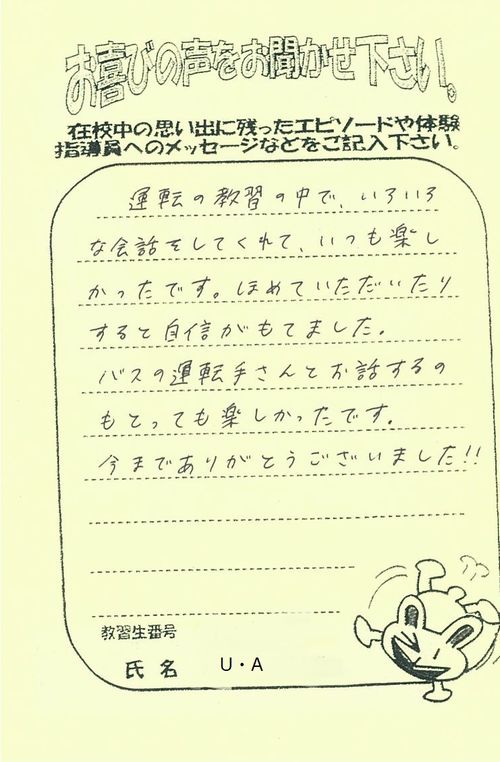 お喜びの声をお聞かせ下さい。
在校中の思い出に残ったエピソードや体験
指導員へのメッセージなどをご記入下さい。
運転の教習の中で、いろいろ
な会話をしてくれて、いつも楽し
かったです。ほめていただいたり
すると自信がもてました。
バスの運転手さんとお話するの
もとっても楽しかったです。
今までありがとうございました!!
教習生番号
氏名 U・A